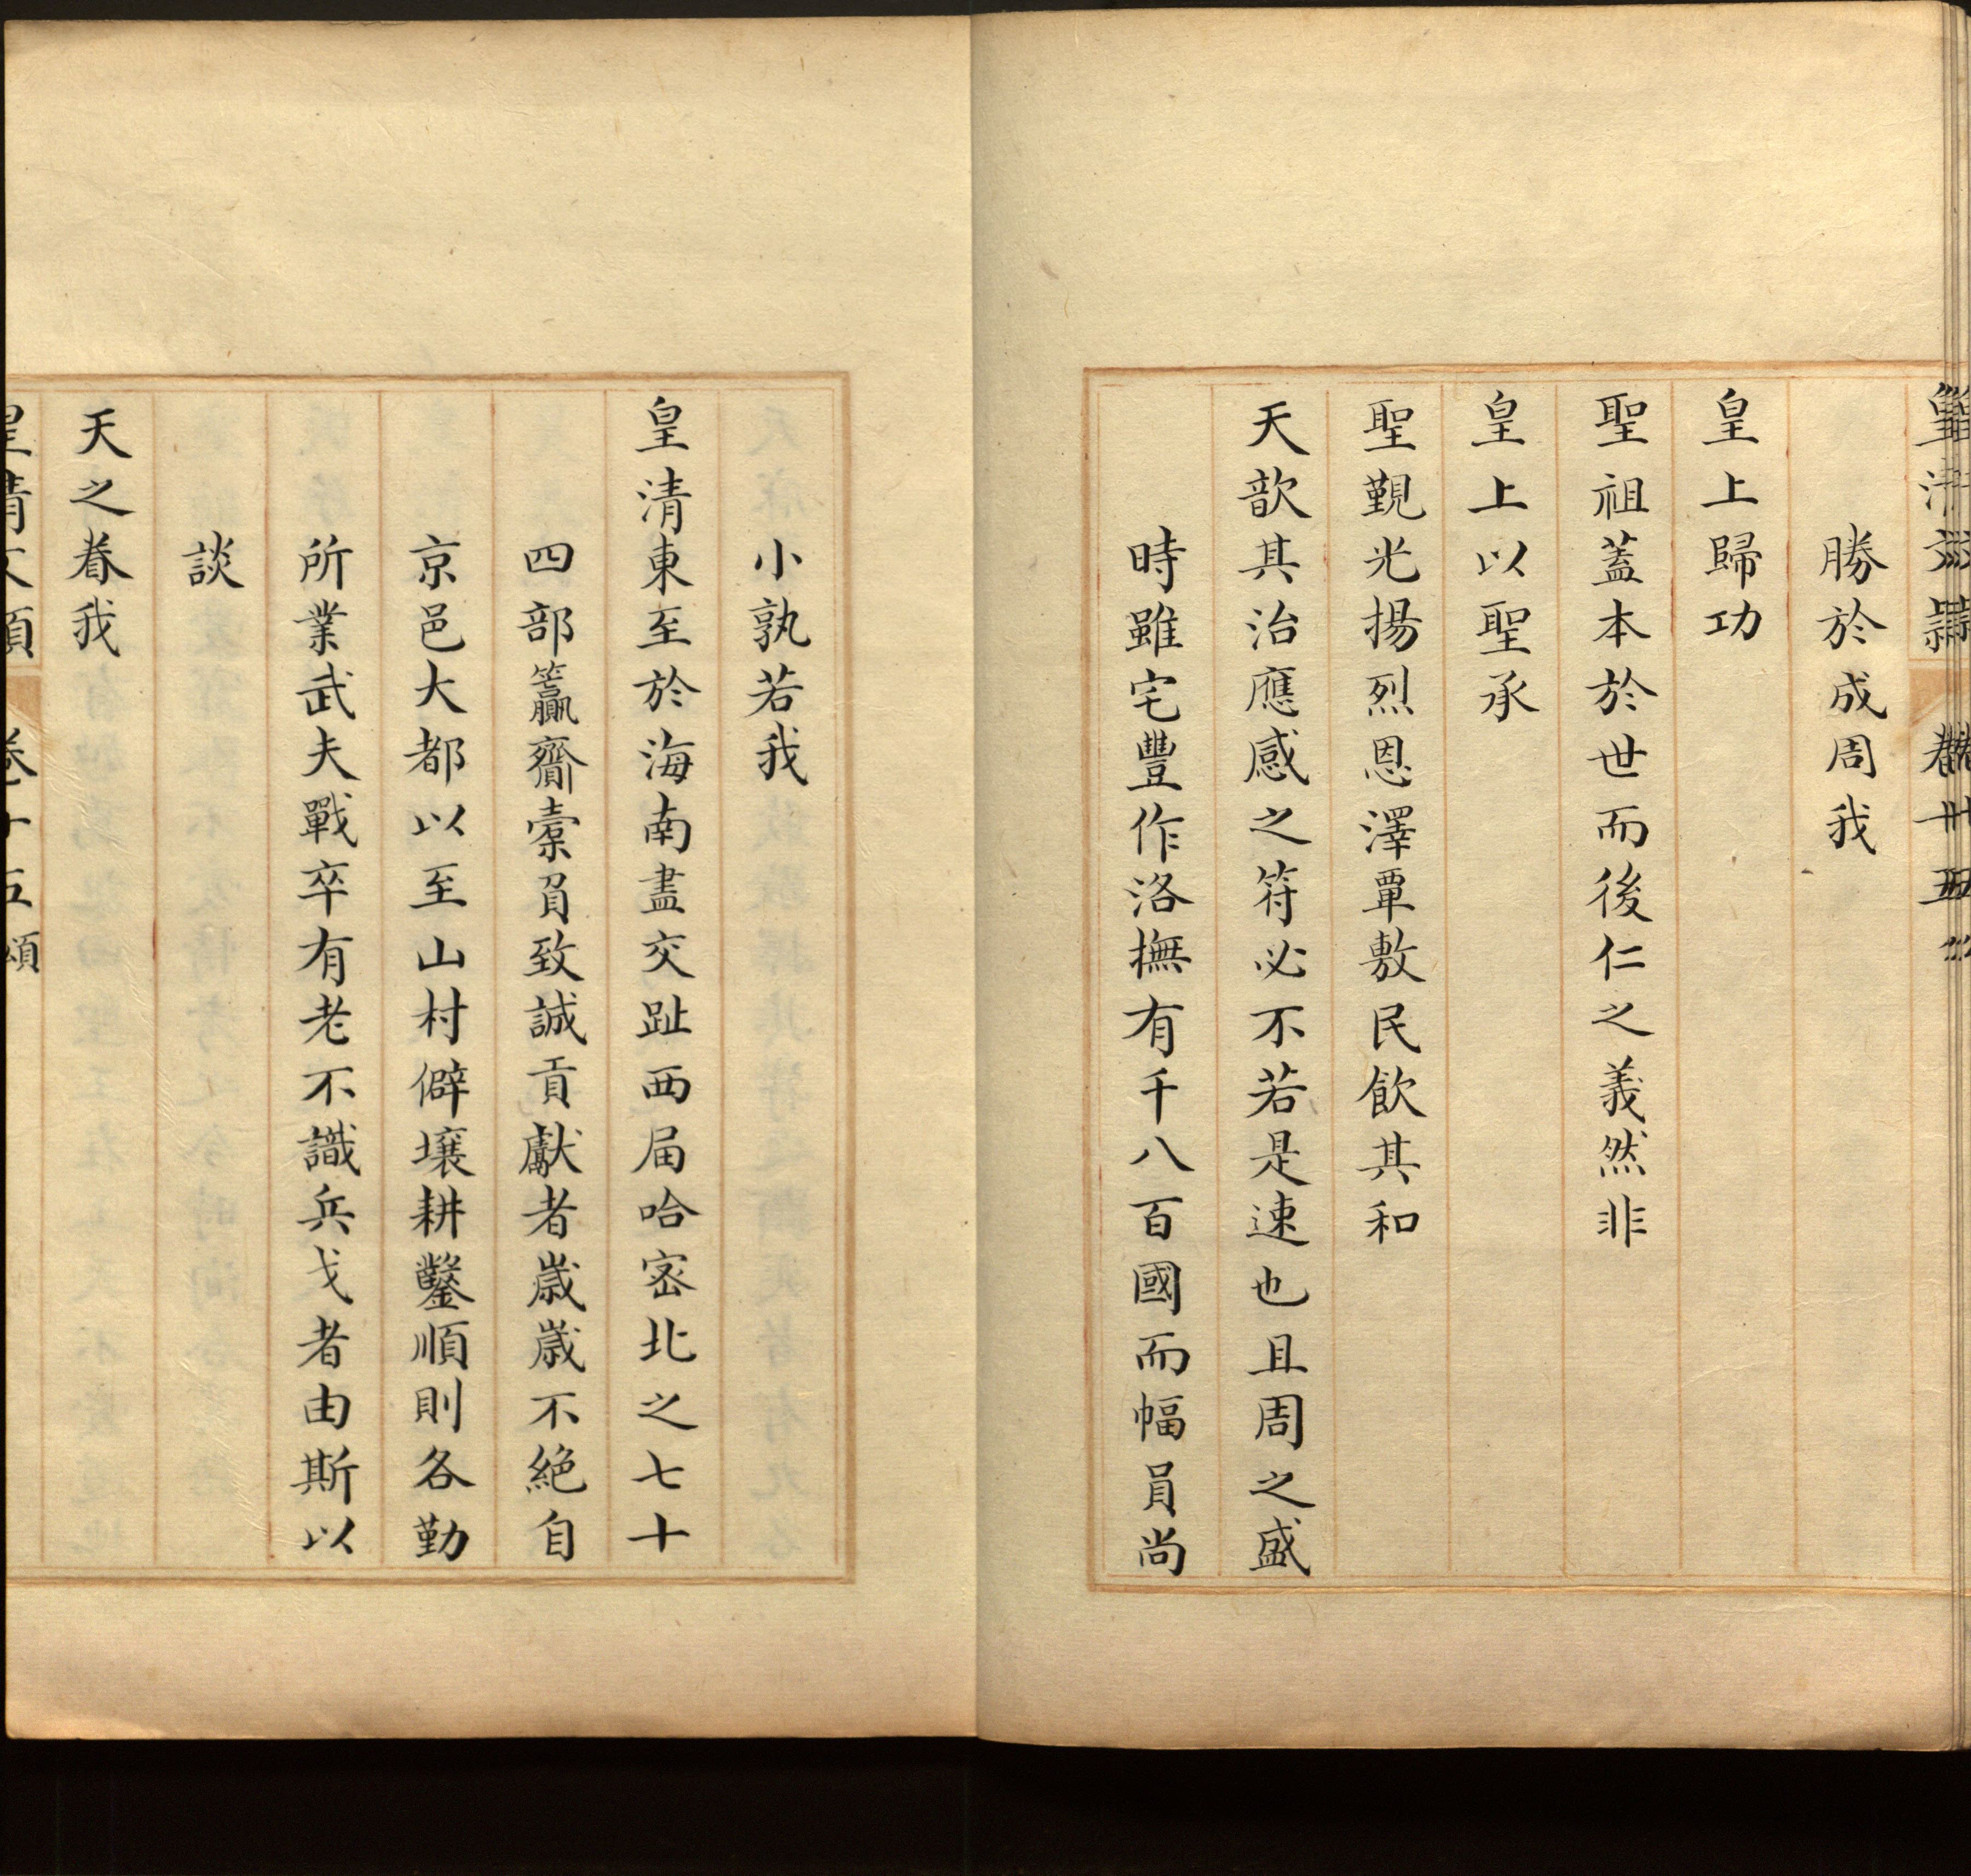 皇清文頴 卷十五
勝於成周我
皇上歸功
聖祖蓋本於世而後仁之義然非
皇上以聖承
聖覲光揚烈恩澤覃敷民飲其和
天歆其治應感之符必不若是速也且周之盛
時雖宅豐作洛撫有千八百國而幅員尚
小孰若我
皇清東至於海南盡交趾西届哈宻北之七十
四部籯齎橐負致誠貢獻者歲歲不絕自
京邑大都以至山村僻壤耕鑿順則各勤
所業武夫戰卒有老不識兵戈者由斯以
談
天之眷我
皇清文頴 卷十五 頌